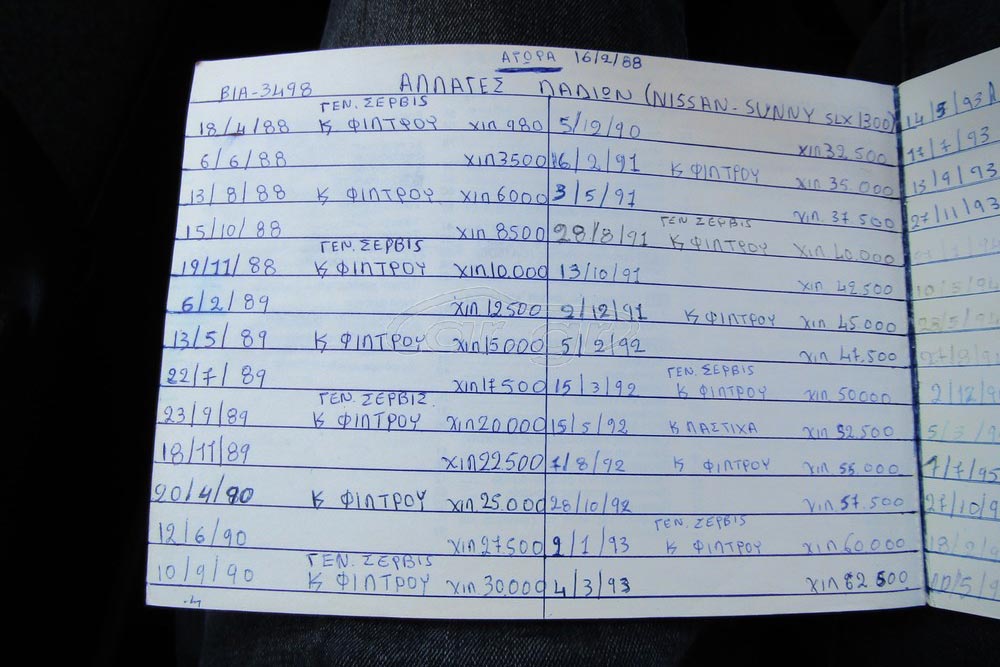 ΑΓΟΡΑ 16/2/88
ΒΙΑ-3498 ΑΛΛΑΓΕΣ ΛΑΔΙΩΝ (NISSAN-SUNNY SLX 1300)
ΓΕΝ. ΣΕΡΒΙΣ
18/4/88 Κ ΦΙΛΤΡΟΥ ΧΙΛ 980
6/6/88 ΧΙΛ 3500
13/8/88 Κ ΦΙΛΤΡΟΥ ΧΙΛ 6000
15/10/88 ΧΙΛ 8500
ΓΕΝ. ΣΕΡΒΙΣ
19/11/88 Κ ΦΙΛΤΡΟΥ ΧΙΛ 10.000
6/2/89 ΧΙΛ 12500
13/5/89 Κ ΦΙΛΤΡΟΥ ΧΙΛ 15000
22/7/89 ΧΙΛ 17500
ΓΕΝ. ΣΕΡΒΙΣ.
23/9/89 Κ ΦΙΛΤΡΟΥ ΧΙΛ 20.000
18/11/89 ΧΙΛ 22500
20/4/90 Κ ΦΙΛΤΡΟΥ ΧΙΛ 25.000
12/6/90 ΧΙΛ 27500
ΓΕΝ. ΣΕΡΒΙΣ
10/9/90 Κ ΦΙΛΤΡΟΥ ΧΙΛ 30.000
5/12/90 ΧΙΛ 32.500
16/2/91 Κ ΦΙΛΤΡΟΥ ΧΙΛ 35.000
3/5/91 ΧΙΛ 37.500
ΓΕΝ ΣΕΡΒΙΣ
28/8/91 Κ ΦΙΛΤΡΟΥ ΧΙΛ 40.000
13/10/91 ΧΙΛ 42.500
2/12/91 Κ ΦΙΛΤΡΟΥ ΧΙΛ 45.000
5/2/92 ΧΙΛ 47.500
ΓΕΝ. ΣΕΡΒΙΣ
15/3/92 Κ ΦΙΛΤΡΟΥ ΧΙΛ 50000
15/5/92 Κ ΛΑΣΤΙΧΑ ΧΙΛ 52.500
7/8/92 Κ ΦΙΛΤΡΟΥ ΧΙΛ 55.000
28/10/92 ΧΙΛ 57.500
ΓΕΝ. ΣΕΡΒΙΣ
2/1/93 Κ ΦΙΛΤΡΟΥ ΧΙΛ 60.000
4/3/93 ΧΙΛ 62500
14/5/93
17/7/93
13/9/93
27/11/93
7/7/95